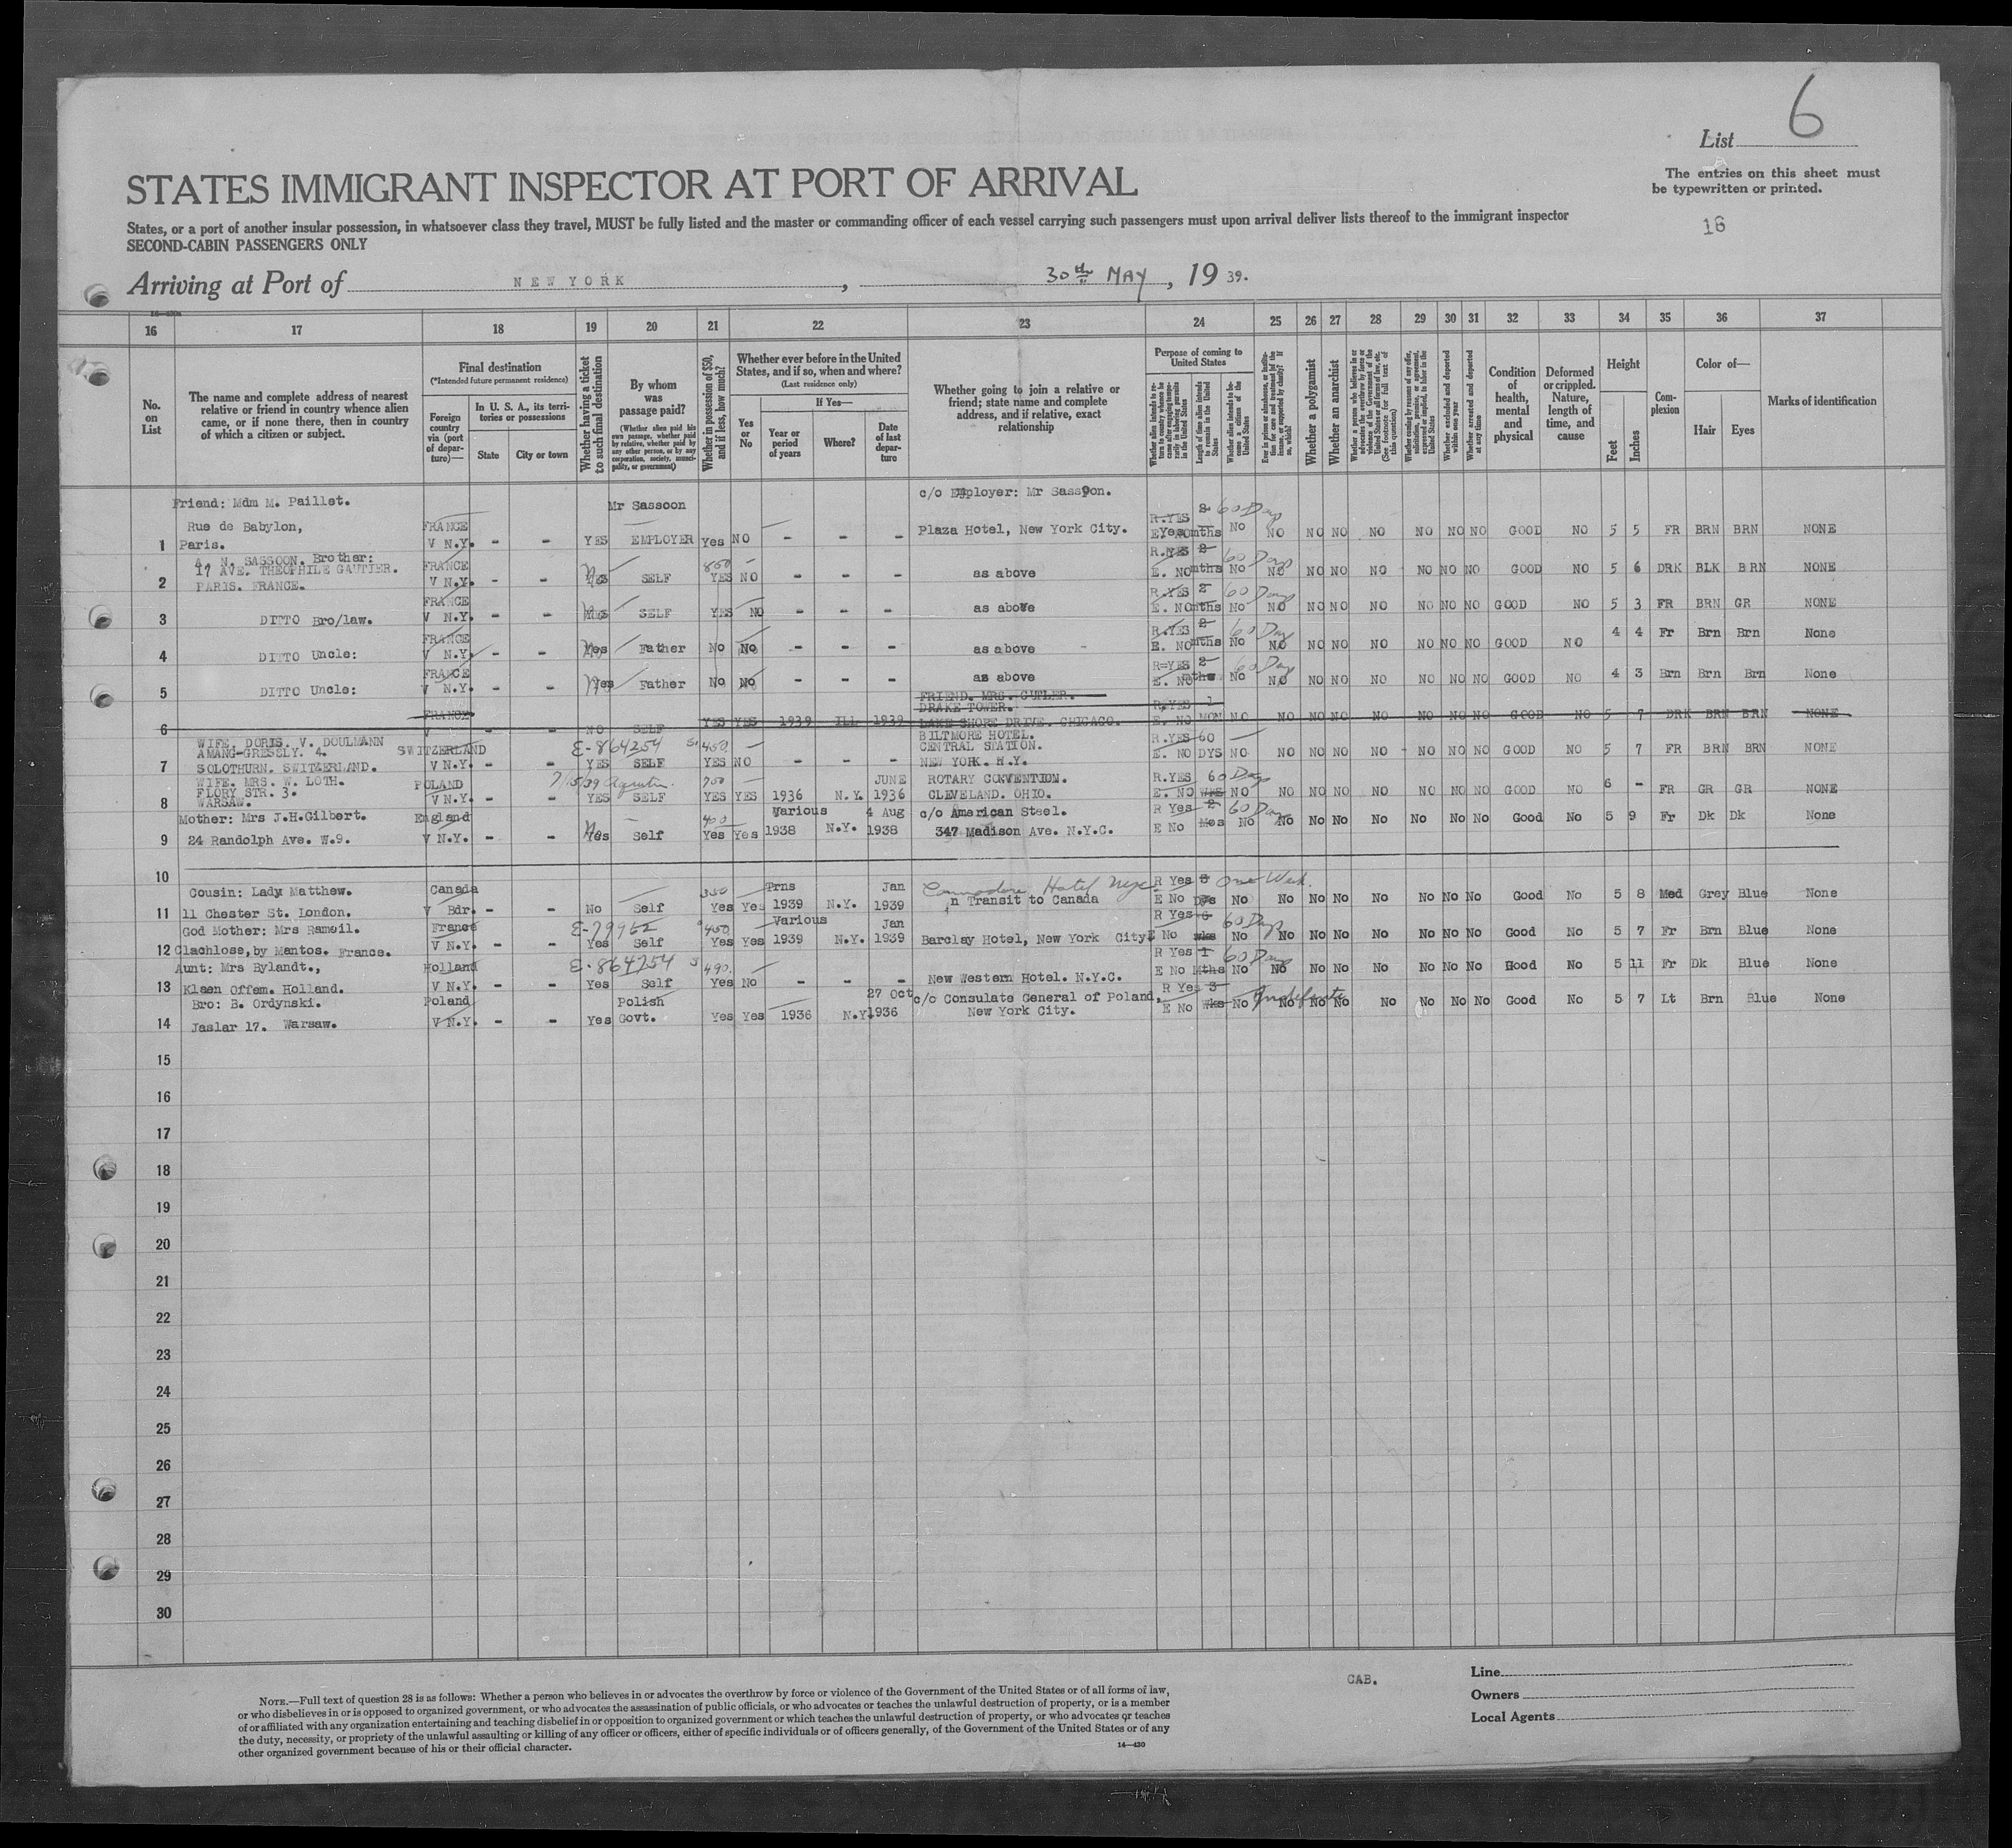 6
List
The entries on this sheet must
be typewritten or printed.
STATES IMMIGRANT INSPECTOR AT PORT OF ARRIVAL
States, or a port of another insular possession, in whatsoever class they travel, MUST be fully listed and the master or commanding officer of each vessel carrying such passengers must upon arrival deliver lists thereof to the immigrant inspector
SECOND-CABIN PASSENGERS ONLY
16
Arriving at Port of NEW YORK , 30th MAY , 19 39.
16 17 18 19 20 21 22 23 24 25 26 27 28 29 30 31 32 33 34 35 36 37
No. on List
The name and complete address of nearest
relative or friend in country whence alien
came, or if none there, then in country
of which a citizen or subject.
Final destination
(*Intended future permanent residence)
Foreign country via (port of departure)—
In U. S. A., its territories or possessions
State
City or town
Whether having a ticket to such final destination
By whom was passage paid?
(Whether alien paid his own passage, whether paid by relative, whether paid by any other person, or by any corporation, society, municipality, or government)
Whether in possession of $50, and if less, how much?
Whether ever before in the United
States, and if so, when and where?
(Last residence only)
Yes or No
If Yes—
Year or period of years
Where?
Date of last departure
Whether going to join a relative or
friend; state name and complete
address, and if relative, exact
relationship
Purpose of coming to United States
Length of time alien intends to remain in the United States
Whether alien intends to become a citizen of the United States
Whether a polygamist
Whether an anarchist
Whether excluded and deported within one year
Whether arrested and deported at any time
Condition of health, mental and physical
Deformed or crippled. Nature, length of time, and cause
Height
Feet
Inches
Complexion
Color of—
Hair
Eyes
Marks of identification
Friend: Mdm M. Paillet. Mr Sassoon c/o Employer: Mr Sassoon. 2 60 Days
Rue de Babylon, FRANCE Plaza Hotel, New York City. R.YES No
1 Paris. V N.Y. - - YES EMPLOYER Yes NO - - - NO NO NO NO NO NO NO GOOD NO 5 5 FR BRN BRN NONE
A. N. SASSOON. Brother:
17 AVE. THEOPHILE GAUTIER. FRANCE 800 R.YES 2 60 Days
2 PARIS. FRANCE. V N.Y. - - YES SELF YES NO - - - as above E. NO mths No NO NO NO NO NO NO NO GOOD NO 5 6 DRK BLK BRN NONE
FRANCE R.YES 2 60 Days
3 DITTO Bro/law. V N.Y. - - YES SELF YES NO - - - as above E. NO mths No NO NO NO NO NO NO NO GOOD NO 5 3 FR BRN GR NONE
FRANCE R.YES 2 60 Days
4 DITTO Uncle: V N.Y. - - Yes Father No No - - - as above E. NO mths No NO NO NO NO NO NO NO GOOD NO 4 4 Fr Brn Brn None
FRANCE R=YES 2 60 Days
5 DITTO Uncle: V N.Y. - - Yes Father No NO - - - as above E. NO mths No NO NO NO NO NO NO NO GOOD NO 4 3 Brn Brn Brn None
FRIEND. MRS. CUTLER.
FRANCE DRAKE TOWER. R.YES 1
6 V - - NO SELF YES YES 1939 ILL 1939 LAKE SHORE DRIVE. CHICAGO. E. NO MON NO NO NO NO NO NO NO NO GOOD NO 5 7 DRK BRN BRN NONE
WIFE. DORIS. V. DOULMANN BILTMORE HOTEL.
AMANG-GRESSLY. 4. SWITZERLAND E-864254 450 CENTRAL STATION. R.YES 60
7 SOLOTHURN. SWITZERLAND. V N.Y. - - YES SELF YES NO - - - NEW YORK. N.Y. E. NO DYS NO NO NO NO NO NO NO NO GOOD NO 5 7 FR BRN BRN NONE
WIFE. MRS. W. LOTH. POLAND 700 JUNE ROTARY CONVENTION. R.YES 60 Days
FLORY STR. 3.
8 WARSAW. V N.Y. - - YES SELF YES YES 1936 N.Y. 1936 CLEVELAND. OHIO. E. NO WKS NO NO NO NO NO NO NO NO GOOD NO 6 - FR GR GR NONE
Mother: Mrs J.H.Gilbert. England 400 Various 4 Aug c/o American Steel. R Yes 2 60 Days
9 24 Randolph Ave. W.9. V N.Y. - - Yes Self Yes Yes 1938 N.Y. 1938 347 Madison Ave. N.Y.C. E No Mos No No No No No No No No Good No 5 9 Fr Dk Dk None
10
Cousin: Lady Matthew. Canada 350 Trns Jan Commodore Hotel NYC R Yes One Week
11 11 Chester St. London. V Bdr. - - No Self Yes Yes 1939 N.Y. 1939 in Transit to Canada E No Dys No No No No No No No No Good No 5 8 Med Grey Blue None
God Mother: Mrs Ramoil. France E-79952 450 Various Jan R Yes 6 60 Days
12 Clachlose, by Mantos. France. V N.Y. - - Yes Self Yes Yes 1939 N.Y. 1939 Barclay Hotel, New York City E No wks No No No No No No No No Good No 5 7 Fr Brn Blue None
Aunt: Mrs Bylandt., Holland E-864254 490. R Yes 1 60 Days
13 Klaen Offem. Holland. V N.Y. - - Yes Self Yes No - - - New Western Hotel. N.Y.C. E No Mths No No No No No No No No Good No 5 11 Fr Dk Blue None
Bro: B. Ordynski. Poland Polish 27 Oct c/o Consulate General of Poland, R Yes 3 Indefinite
14 Jaslar 17. Warsaw. V N.Y. - - Yes Govt. Yes Yes 1936 N.Y. 1936 New York City. E No Wks No No No No No No No No Good No 5 7 Lt Brn Blue None
15
16
17
18
19
20
21
22
23
24
25
26
27
28
29
30
CAB.
Line
Owners
Local Agents
NOTE.—Full text of question 28 is as follows: Whether a person who believes in or advocates the overthrow by force or violence of the Government of the United States or of all forms of law,
or who disbelieves in or is opposed to organized government, or who advocates the assassination of public officials, or who advocates or teaches the unlawful destruction of property, or is a member
of or affiliated with any organization entertaining and teaching disbelief in or opposition to organized government or which teaches the unlawful destruction of property, or who advocates or teaches
the duty, necessity, or propriety of the unlawful assaulting or killing of any officer or officers, either of specific individuals or of officers generally, of the Government of the United States or of any
other organized government because of his or their official character.
14—430